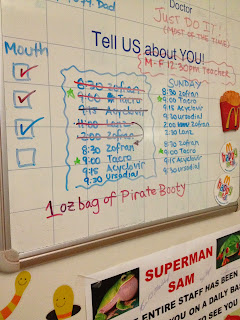 Doctor
JUST DO IT!
(MOST OF THE TIME)
Tell US about YOU!
M-F 12:30pm Teacher
Mouth
8:30 Zofran
9:00 Tacro
9:15 Acyclovir
11:00 Lanz
2:00 Zofran
8:30 Zofran
9:00 Tacro
9:15 Acyclovir
9:30 Ursodial
SUNDAY
8:30 Zofran
9:00 Tacro
9:15 Acyclovir
9:30 Ursodial
2:00 Zofran
2:30 Lanz
8:30 Zofran
9:00 Tacro
9:15 Acyclovir
9:30 Ursodial
1 oz bag of Pirate Booty
SUPERMAN
SAM
ENTIRE STAFF HAS BEEN
YOU ON A DAILY BA
TO SEE YOU